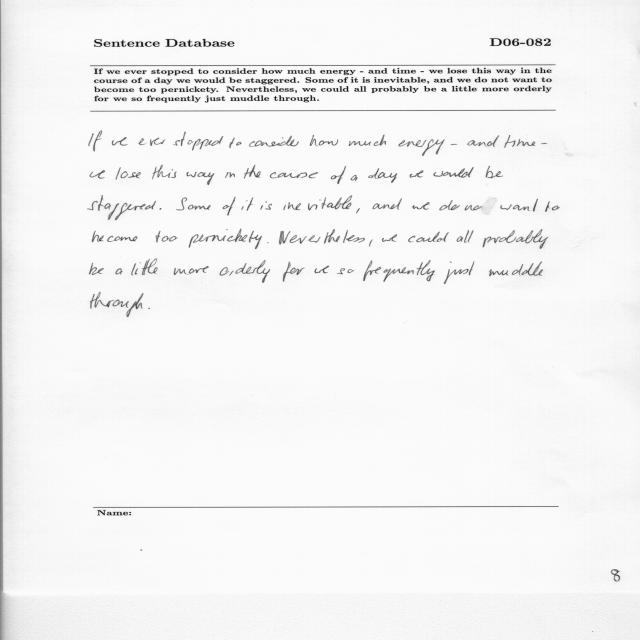 Sentence Database D06-082
If we ever stopped to consider how much energy - and time - we lose this way in the
course of a day we would be staggered. Some of it is inevitable, and we do not want to
become too pernickety. Nevertheless, we could all probably be a little more orderly
for we so frequently just muddle through.
If we ever stopped to consider how much energy - and time -
we lose this way in the course of a day we would be
staggered. Some of it is inevitable, and we do not want to
become too pernickety. Nevertheless, we could all probably
be a little more orderly for we so frequently just muddle
through.
Name:
8